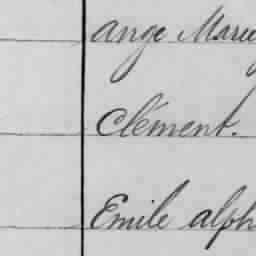 ange Marie
Clément.
Emile alph